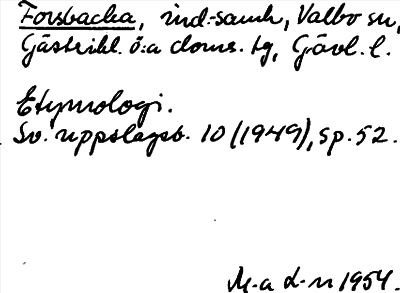 Forsbacka, ind.-samh., Valbo sn,
Gästrikl. ö:a doms. tg, Gävl. l.
Etymologi.
Sv. uppslagsb. 10 (1949), sp. 52.
M-a L-n 1954.